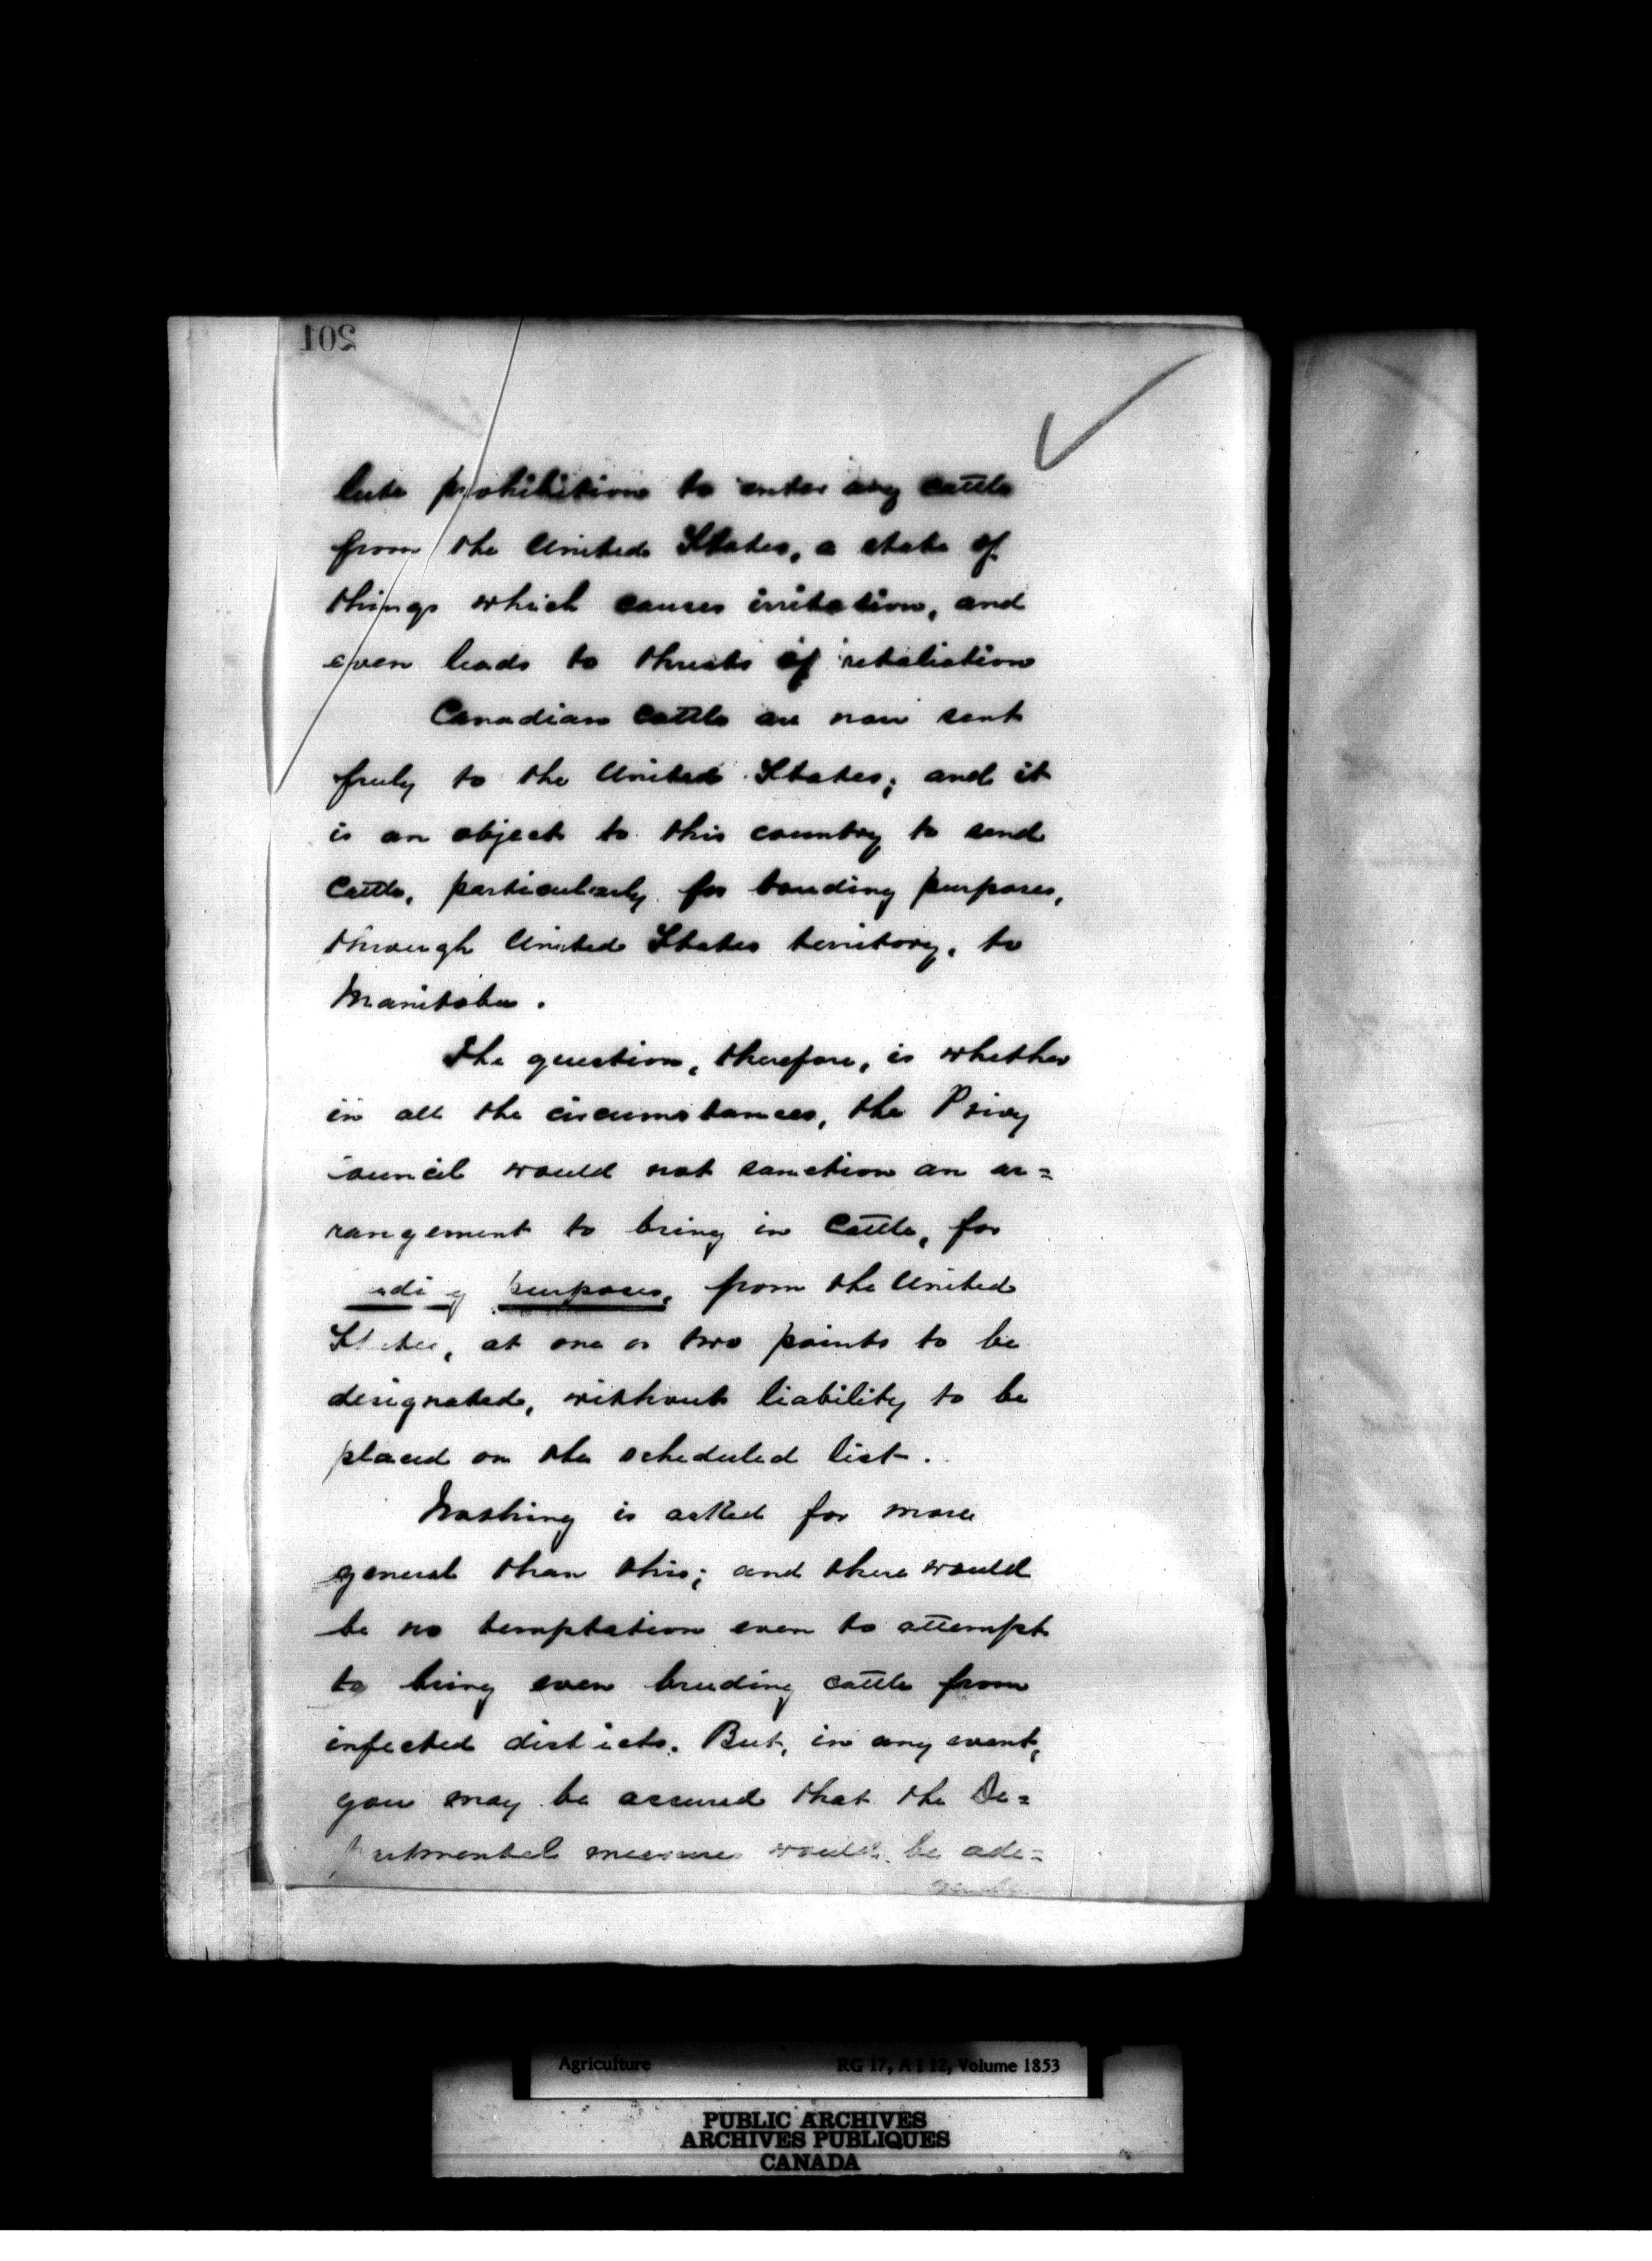 201
lute prohibition to enter any cattle
from the United States, a state of
things which causes irritation, and
even leads to threats of retaliation
Canadian cattle are now sent
freely to the United States; and it
is an object to this country to send
Cattle, particularly for breeding purposes,
through United States territory, to
Manitoba.
The question, therefore, is whether
in all the circumstances, the Privy
Council would not sanction an ar=
rangement to bring in Cattle, for
purposes, from the United
States, at one or two points to be
designated, without liability to be
placed on the scheduled list.
Nothing is asked for more
general than this; and there would
be no temptation even to attempt
to bring even breeding cattle from
infected districts. But, in any event,
you may be assured that the De=
partmental measures would be ade=
quate
Agriculture RG 17, A I 12, Volume 1853
PUBLIC ARCHIVES
ARCHIVES PUBLIQUES
CANADA